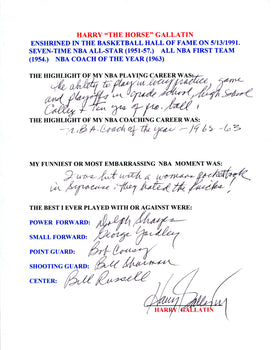 HARRY "THE HORSE" GALLATIN
ENSHRINED IN THE BASKETBALL HALL OF FAME ON 5/13/1991.
SEVEN-TIME NBA ALL-STAR (1951-57.) ALL NBA FIRST TEAM
(1954.) NBA COACH OF THE YEAR (1963)
THE HIGHLIGHT OF MY NBA PLAYING CAREER WAS:
The ability to play in every practice, game
and playoffs in grade school, high School
College & ten yrs of pro. ball!
THE HIGHLIGHT OF MY NBA COACHING CAREER WAS:
N.B.A. Coach of the year - 1963-63
MY FUNNIEST OR MOST EMBARRASSING NBA MOMENT WAS:
I was hit with a woman's pocketbook
in Syracuse. They hated the Knicks!
THE BEST I EVER PLAYED WITH OR AGAINST WERE:
POWER FORWARD: Dolph Shayes
SMALL FORWARD: George Yardley
POINT GUARD: Bob Cousy
SHOOTING GUARD: Bill Sharman
CENTER: Bill Russell
Harry Gallatin
HARRY GALLATIN